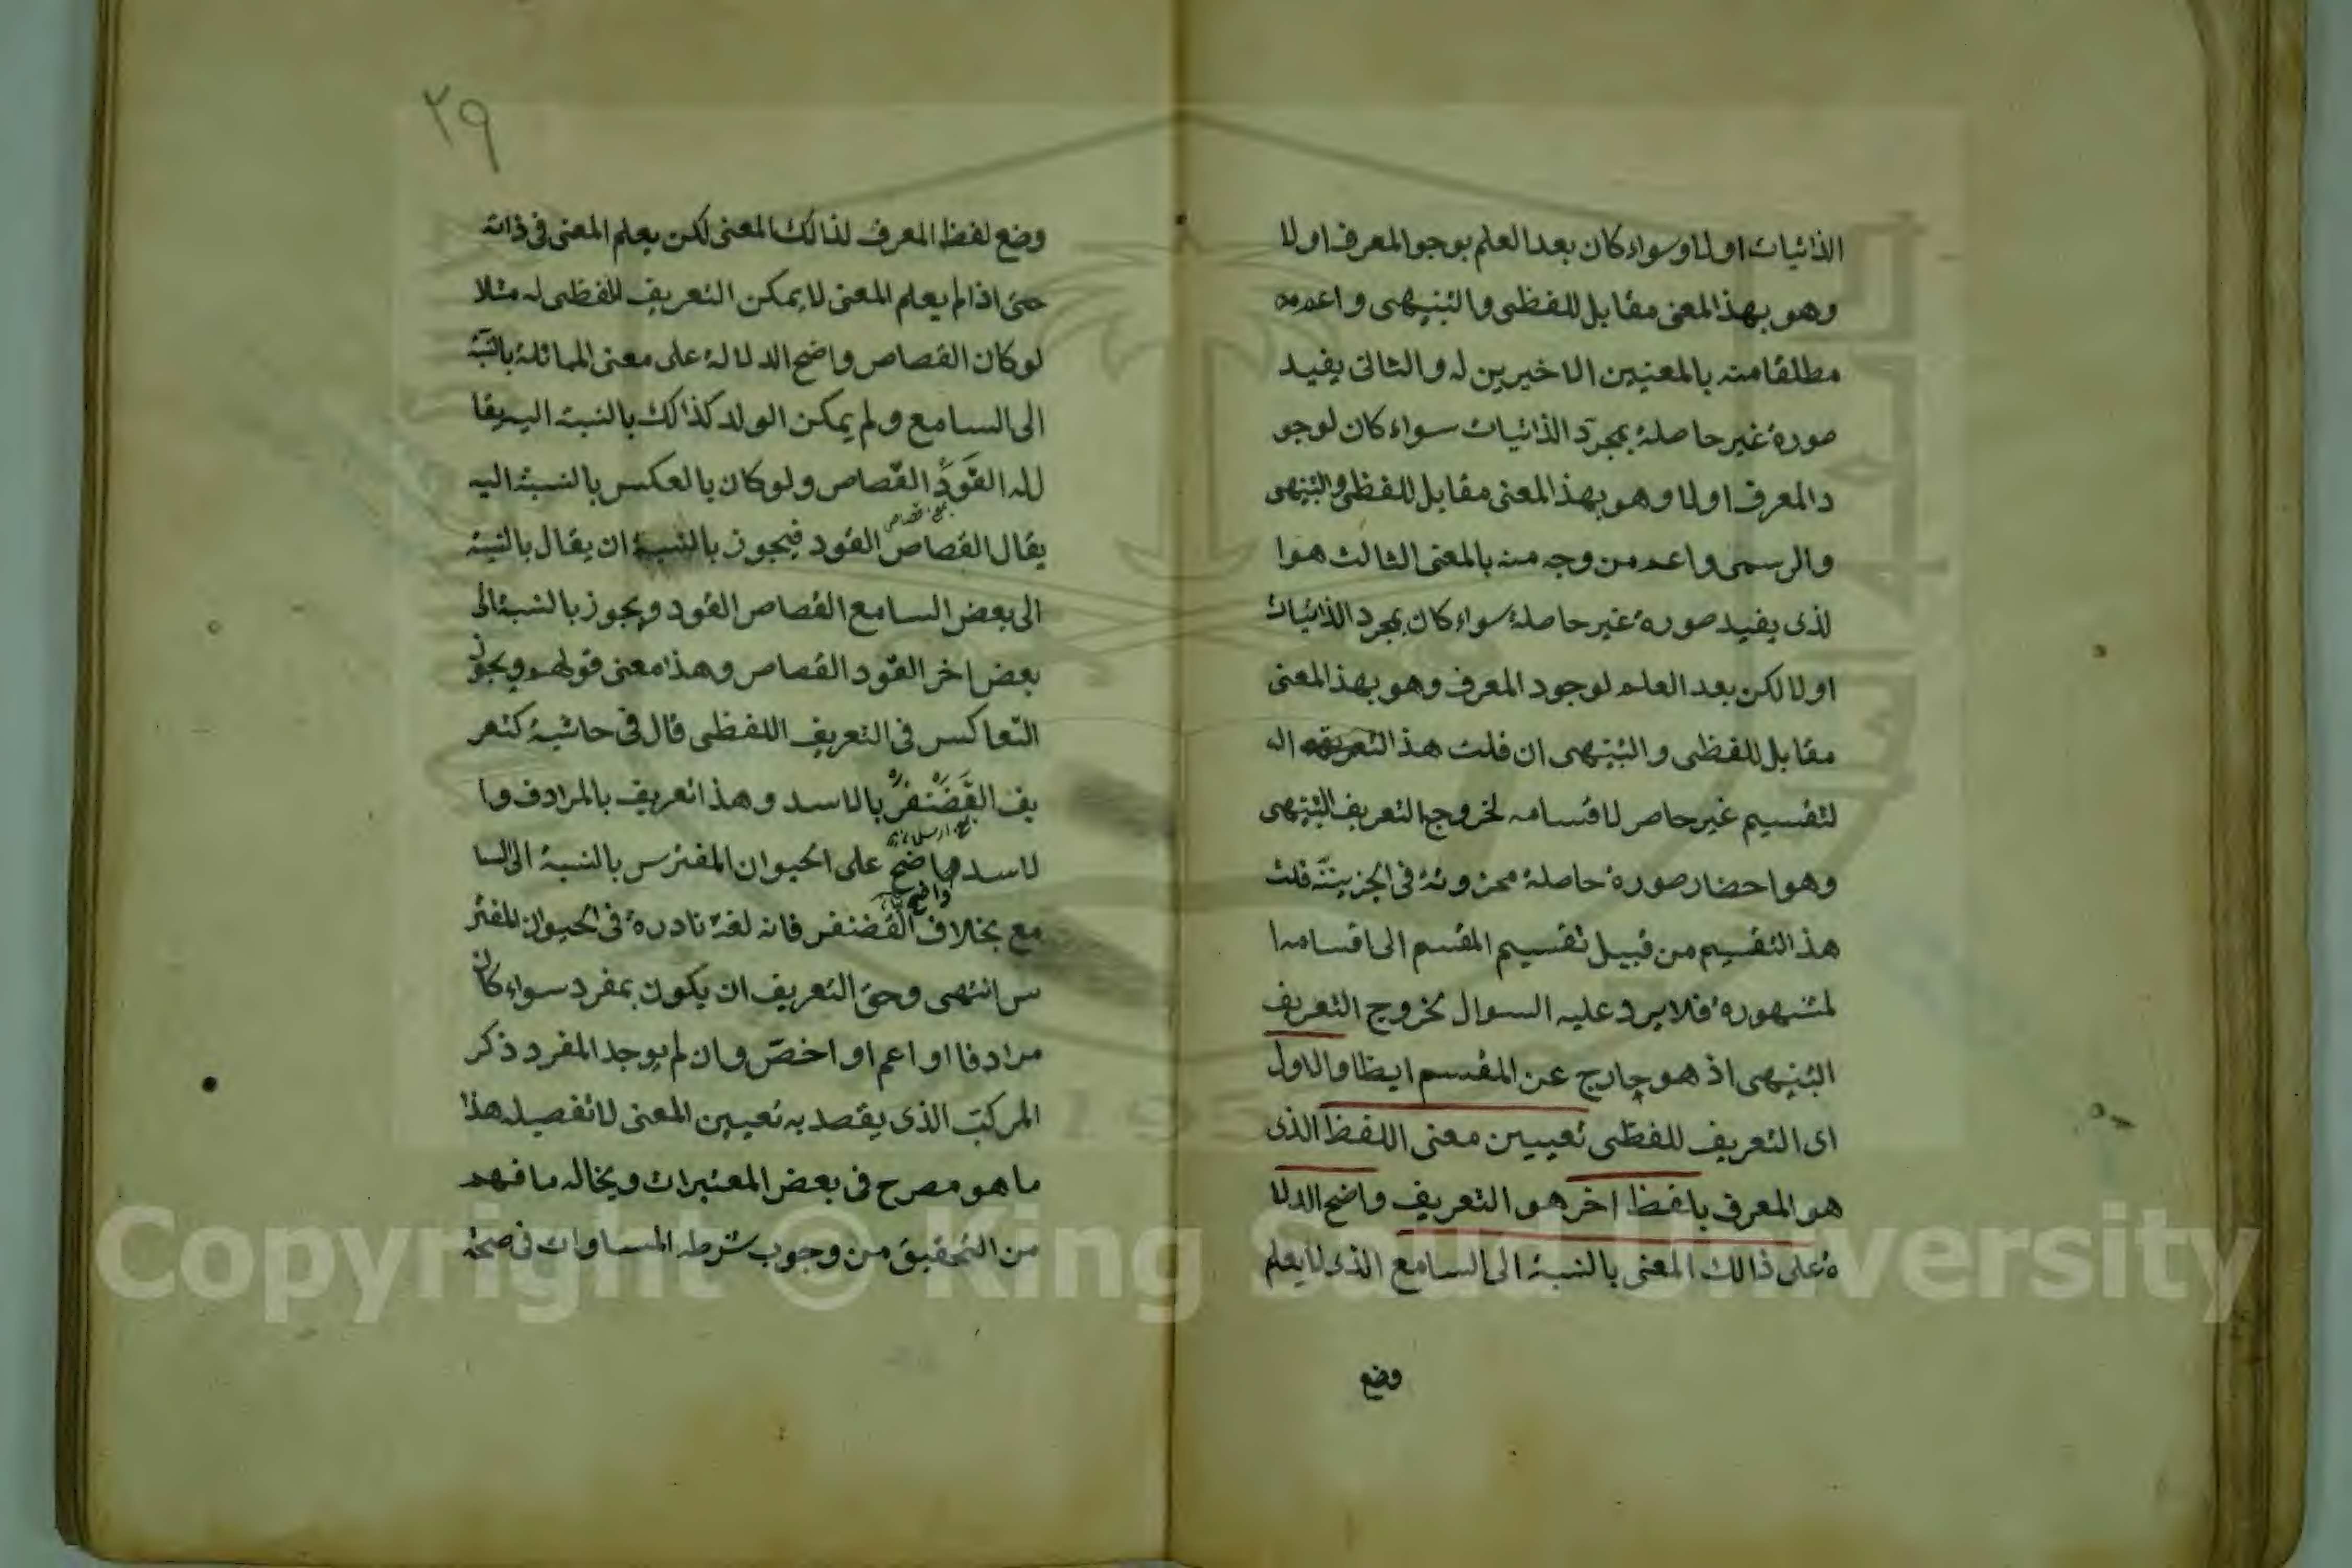 الذاتيات اولا وسواء كان بعد العلم بوجو المعرف اولا
وهو بهذ المعنى مقابل للفظى والتنبيهى واعمه
مطلقا منه بالمعنيين الاخيرين له والثانى يفيد
صورة غير حاصلة بمجرّد الذاتيات سواء كان لوجو
د المعرف اولا وهو بهذ المعنى مقابل للفظى والتنبيهى
والرسمى واعم من وجه منه بالمعنى الثالث هو ا
لذى يفيد صورة غير حاصلة سواء كان بمجرد الذاتيات
اولا لكن بعد العلم لوجود المعرف وهو بهذ المعنى
مقابل للفظى والتنبيهى ان قلت هذ
لتقسيم غير حاصر لاقسامه لخروج التعريف التنبيهى
وهو احضار صورة حاصلة مخزونة فى قلت
هذ التقسيم من قبيل تقسيم المقسم الى اقسامه ا
لمشهورة فلا يرد عليه السوال بخروج التعريف
التنبيهى اذ هو خارج عن المقسم ايظا والاول
اى التعريف للفظى تعيين معنى اللفظ الذى
هو المعرف بلفظ اخر هو التعريف واضح الدلا
ة على ذالك المعنى بالنسبة الى السامع الذى لا يعلم
وضع
٢٩
وضع لفظ المعرف لذالك المعنى لكن يعلم المعنى فى ذاته
حتى اذا لم يعلم المعنى لا يمكن التعريف للفظى له مثلا
لو كان القصاص واضح الدلالة على معنى المماثلة بالنسبة
الى السامع ولم يمكن الولد كذالك بالنسبة اليه يقا
لله القَوَدُ القصاص ولو كان بالعكس بالنسبة اليه
يقال القصاص القود فيجوز بالنسبة ان يقال بالنسبة
الى بعض السامع القصاص القود ويجوز بالنسبة الى
بعض اخر القود القصاص وهذا معنى قولهم ويجوز
التعاكس فى التعريف اللفظى قال فى حاشية كتعر
يف الغَضَنْفَرُ بالاسد وهذا تعريف بالمرادف وا
لاسد واضح على الحيوان المفترس بالنسبة الى السا
مع بخلاف الغضنفر فانه لغة نادرة فى الحيوان المفتر
س انتهى وحق التعريف ان يكون بمفرد سواء كان
مرادفا او اعم او اخصّ وان لم يوجد المفرد ذكر
المركب الذى يقصد به تعيين المعنى لا تفصيله هذا
ما هو مصرح فى بعض المعتبرات ويخاله ما فهم
من التحقيق من وجوب شرطه المساوات فى صحة